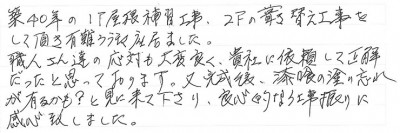 築40年の1F屋根補習工事、2Fの葺き替え工事を
して頂き有難うございました。
職人さん達の応対も大変良く、貴社に依頼して正解
だったと思っております。又完成後、漆喰の塗り忘れ
が有るかも?と見に来て下さり、良心的なる工事振りに
感心致しました。